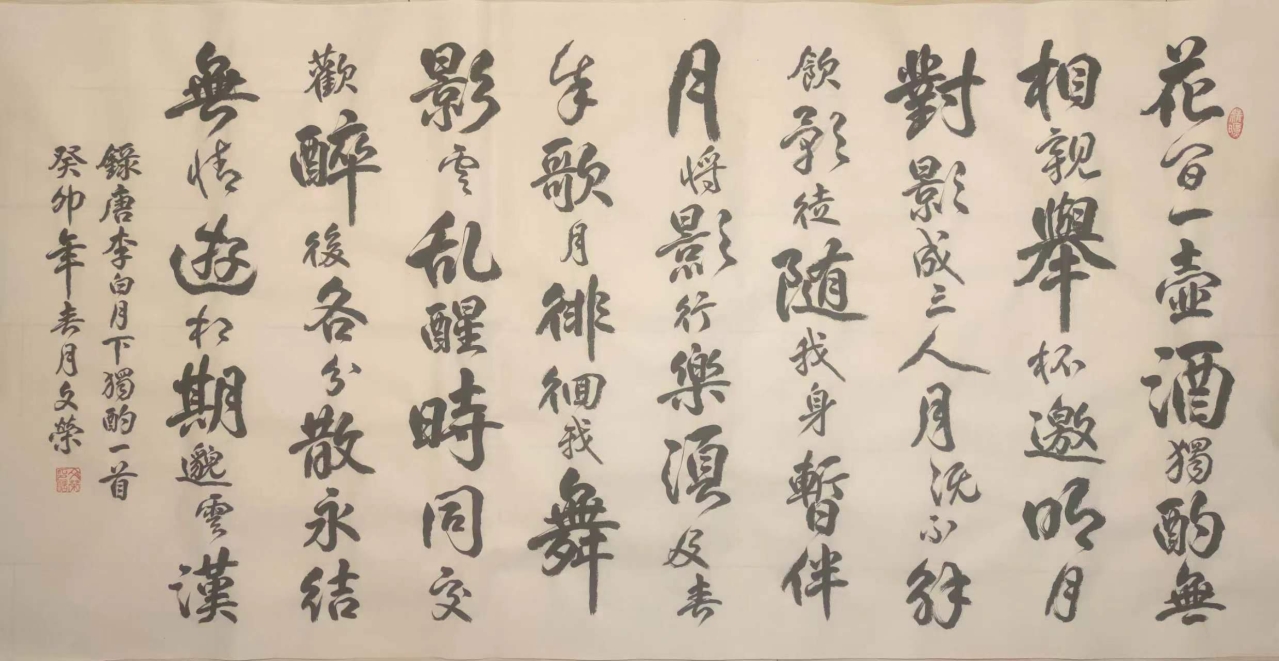 花间一壺酒獨酌無
相親舉杯邀明月
對影成三人月既不解
飲影徒随我身暫伴
月将影行樂須及春
我歌月徘徊我舞
影零乱醒時同交
歡醉後各分散永結
無情遊相期邈雲漢
錄唐李白月下獨酌一首
癸卯年春月文榮